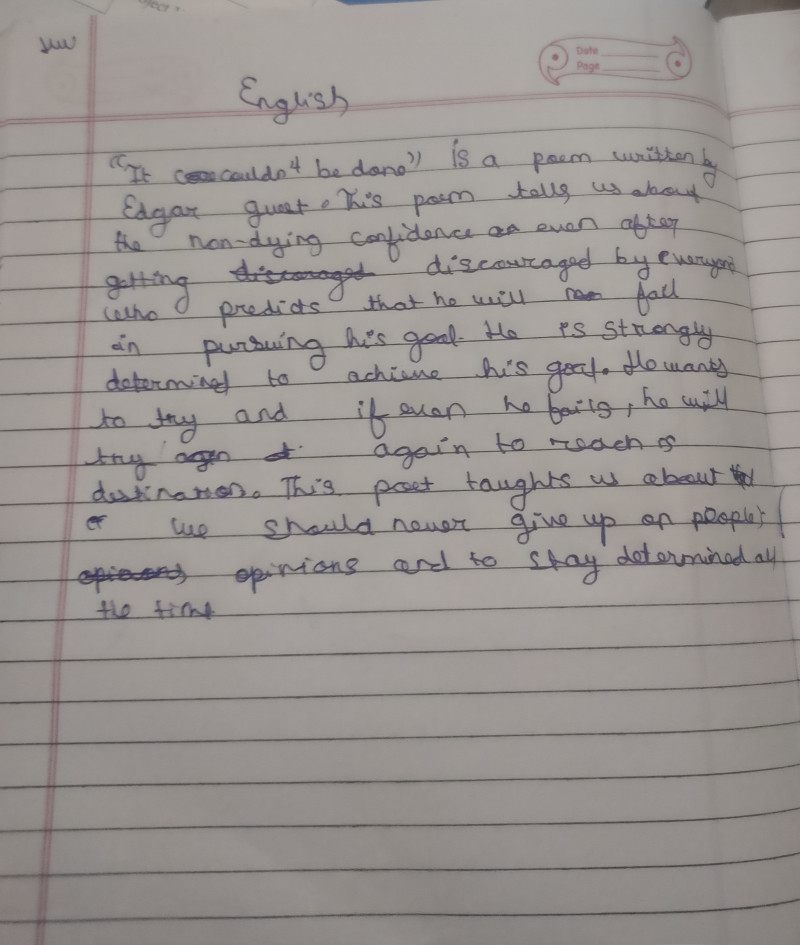 English
Date
Page
"It couldn't be done" is a poem written by
Edgar guest. This poem tells us about
the non-dying confidence even after
getting discouraged by everyone
who predicts that he will fail
in pursuing his goal. He is strongly
determined to achieve his goal. He wants
to try and if even he fails, he will
try again to reach
destination. This poet taughts us about
we should never give up on people's
opinions and to stay determined all
the time